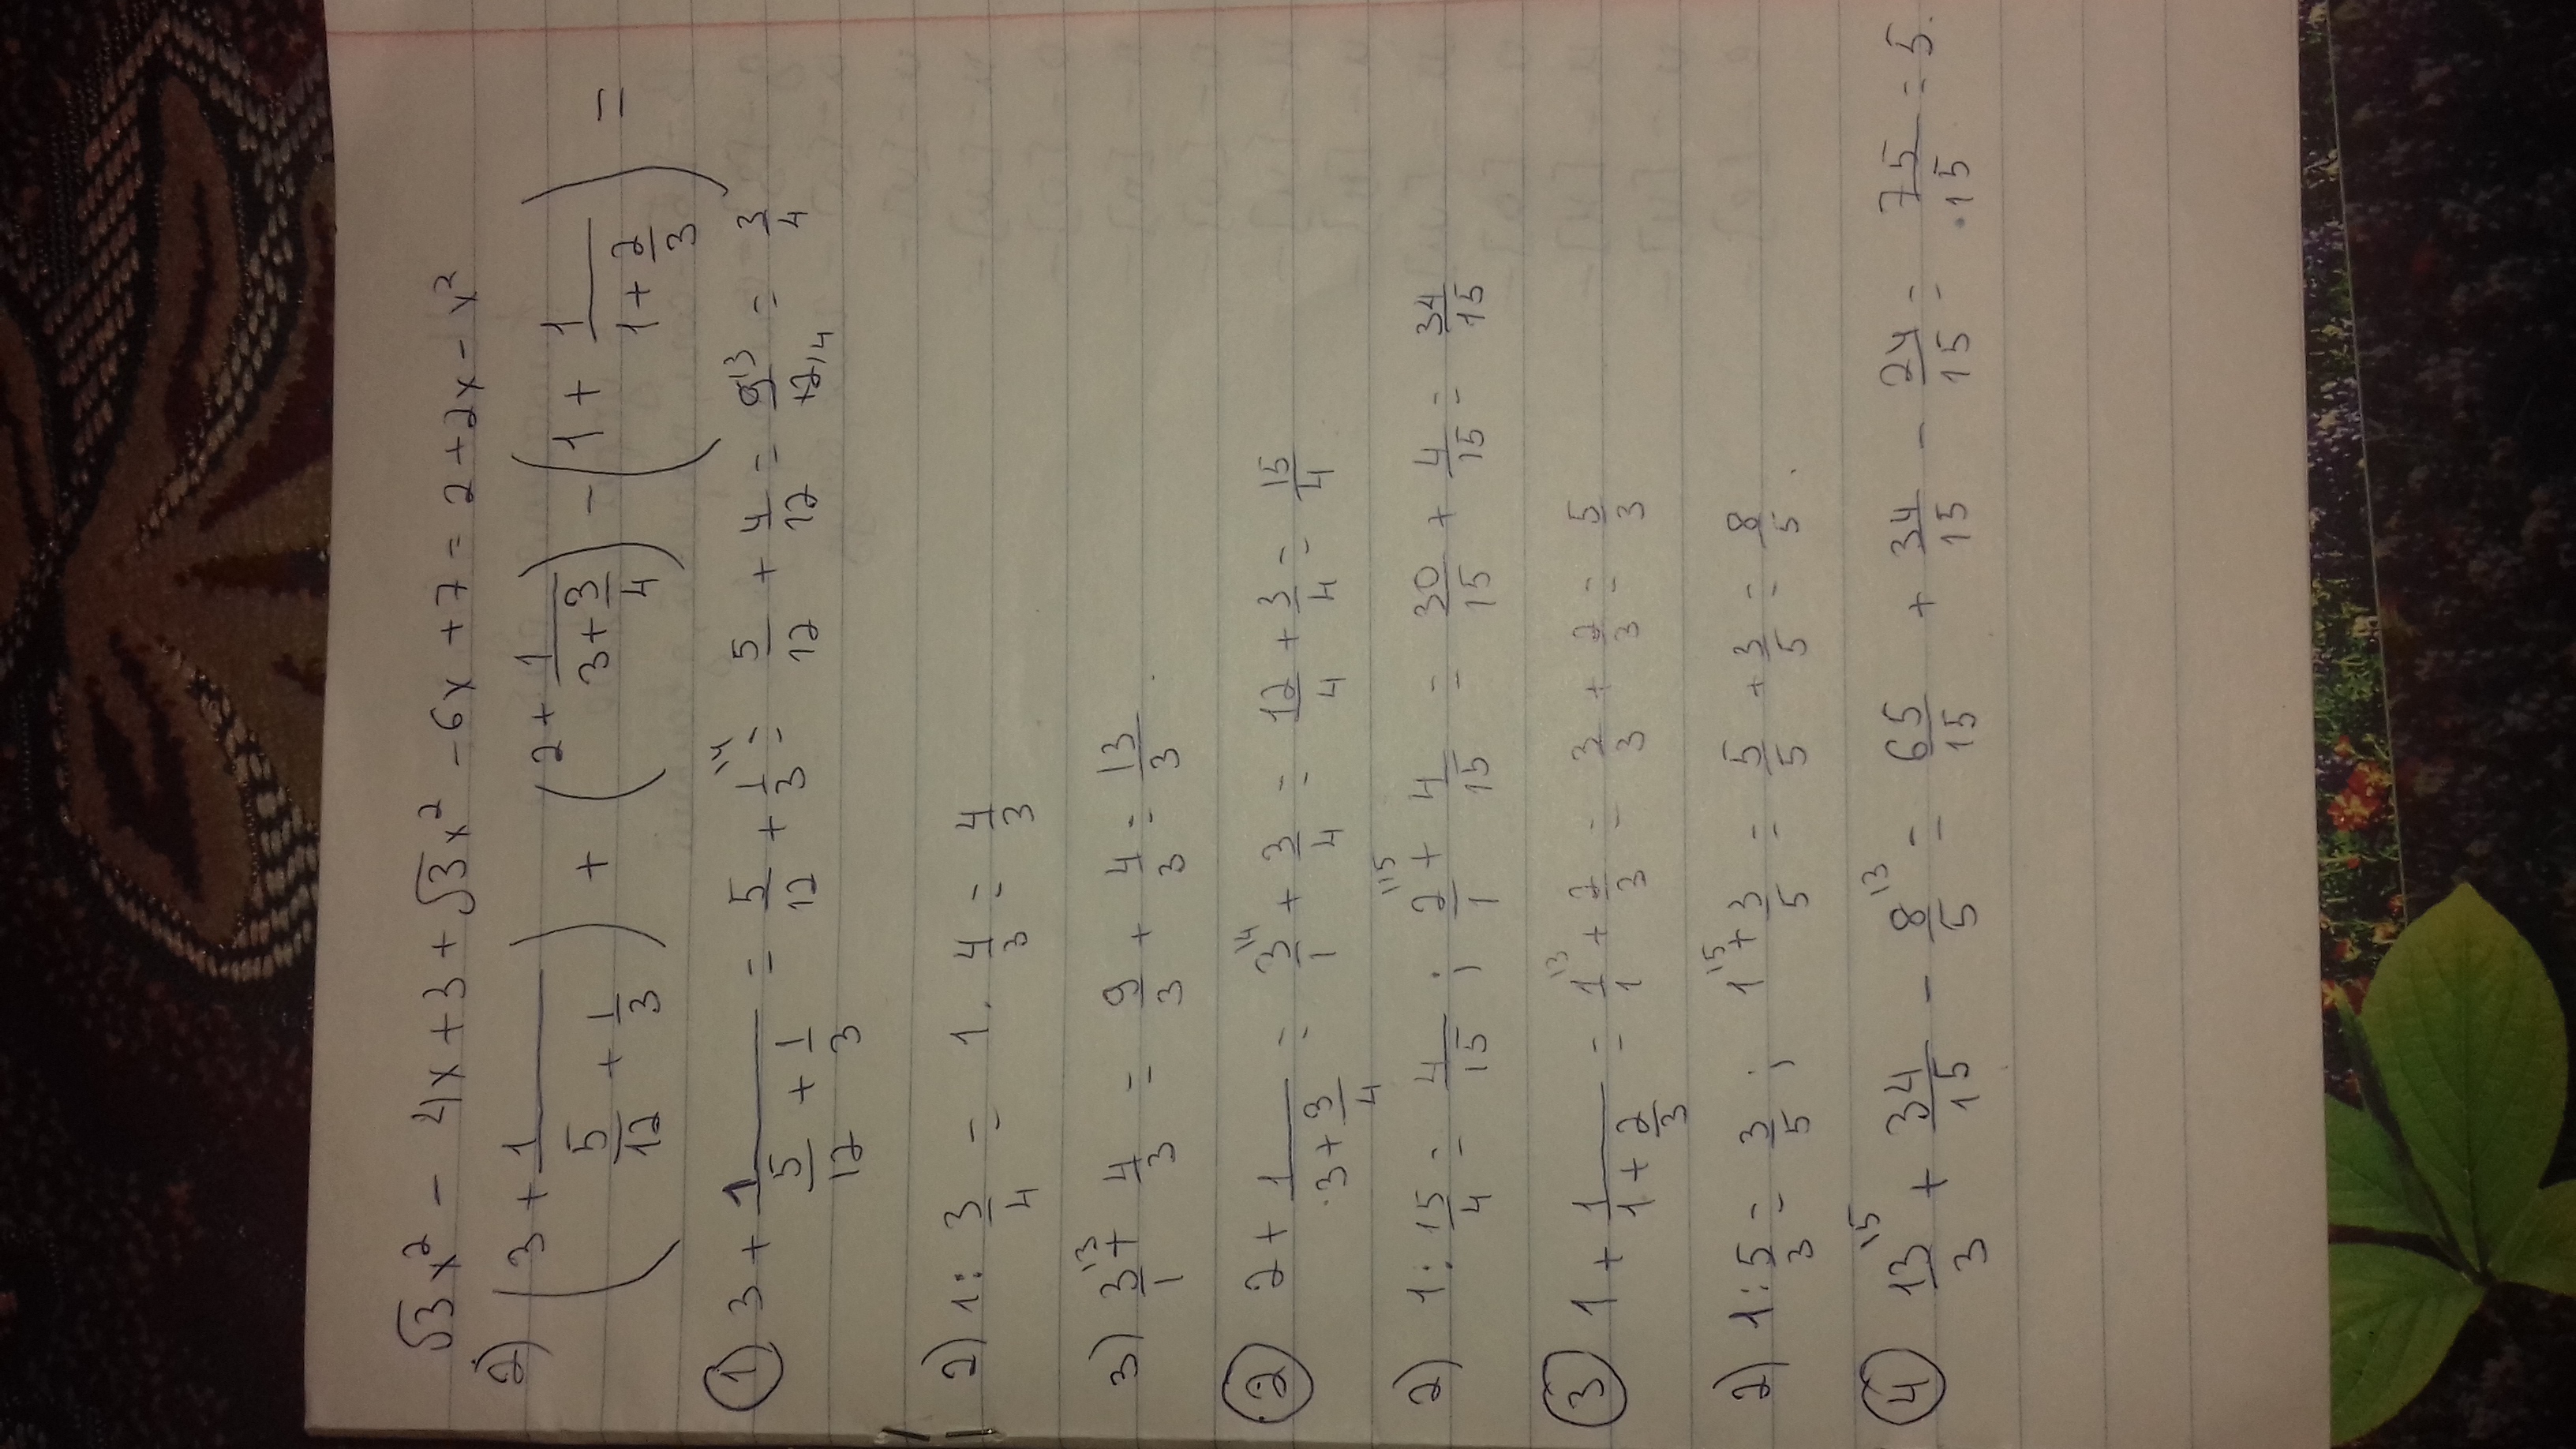 √3x² - 4x + 3 + √3x² - 6x + 7 = 2 + 2x - x²
2) (3 + 1/(5/12 + 1/3)) + (2 + 1/(3 + 3/4)) - (1 + 1/(1 + 2/3)) =
① 3 + 1/(5/12 + 1/3) = 5/12 + 1/3 ^{14} = 5/12 + 4/12 = 9/12 ^{13}_{14} = 3/4
2) 1 : 3/4 = 1 · 4/3 = 4/3
3) 3/1 ^{13} + 4/3 = 9/3 + 4/3 = 13/3 .
② 2 + 1/(3 + 3/4) = 3/1 ^{14} + 3/4 = 12/4 + 3/4 = 15/4
2) 1 : 15/4 = 4/15 ; 2/1 ^{115} + 4/15 = 30/15 + 4/15 = 34/15
③ 1 + 1/(1 + 2/3) = 1/1 ^{13} + 2/3 = 3/3 + 2/3 = 5/3
2) 1 : 5/3 = 3/5 ; 1 ^{15} + 3/5 = 5/5 + 3/5 = 8/5 .
④ 13/3 ^{15} + 34/15 - 8/5 ^{13} = 65/15 + 34/15 - 24/15 = 75/15 = 5.